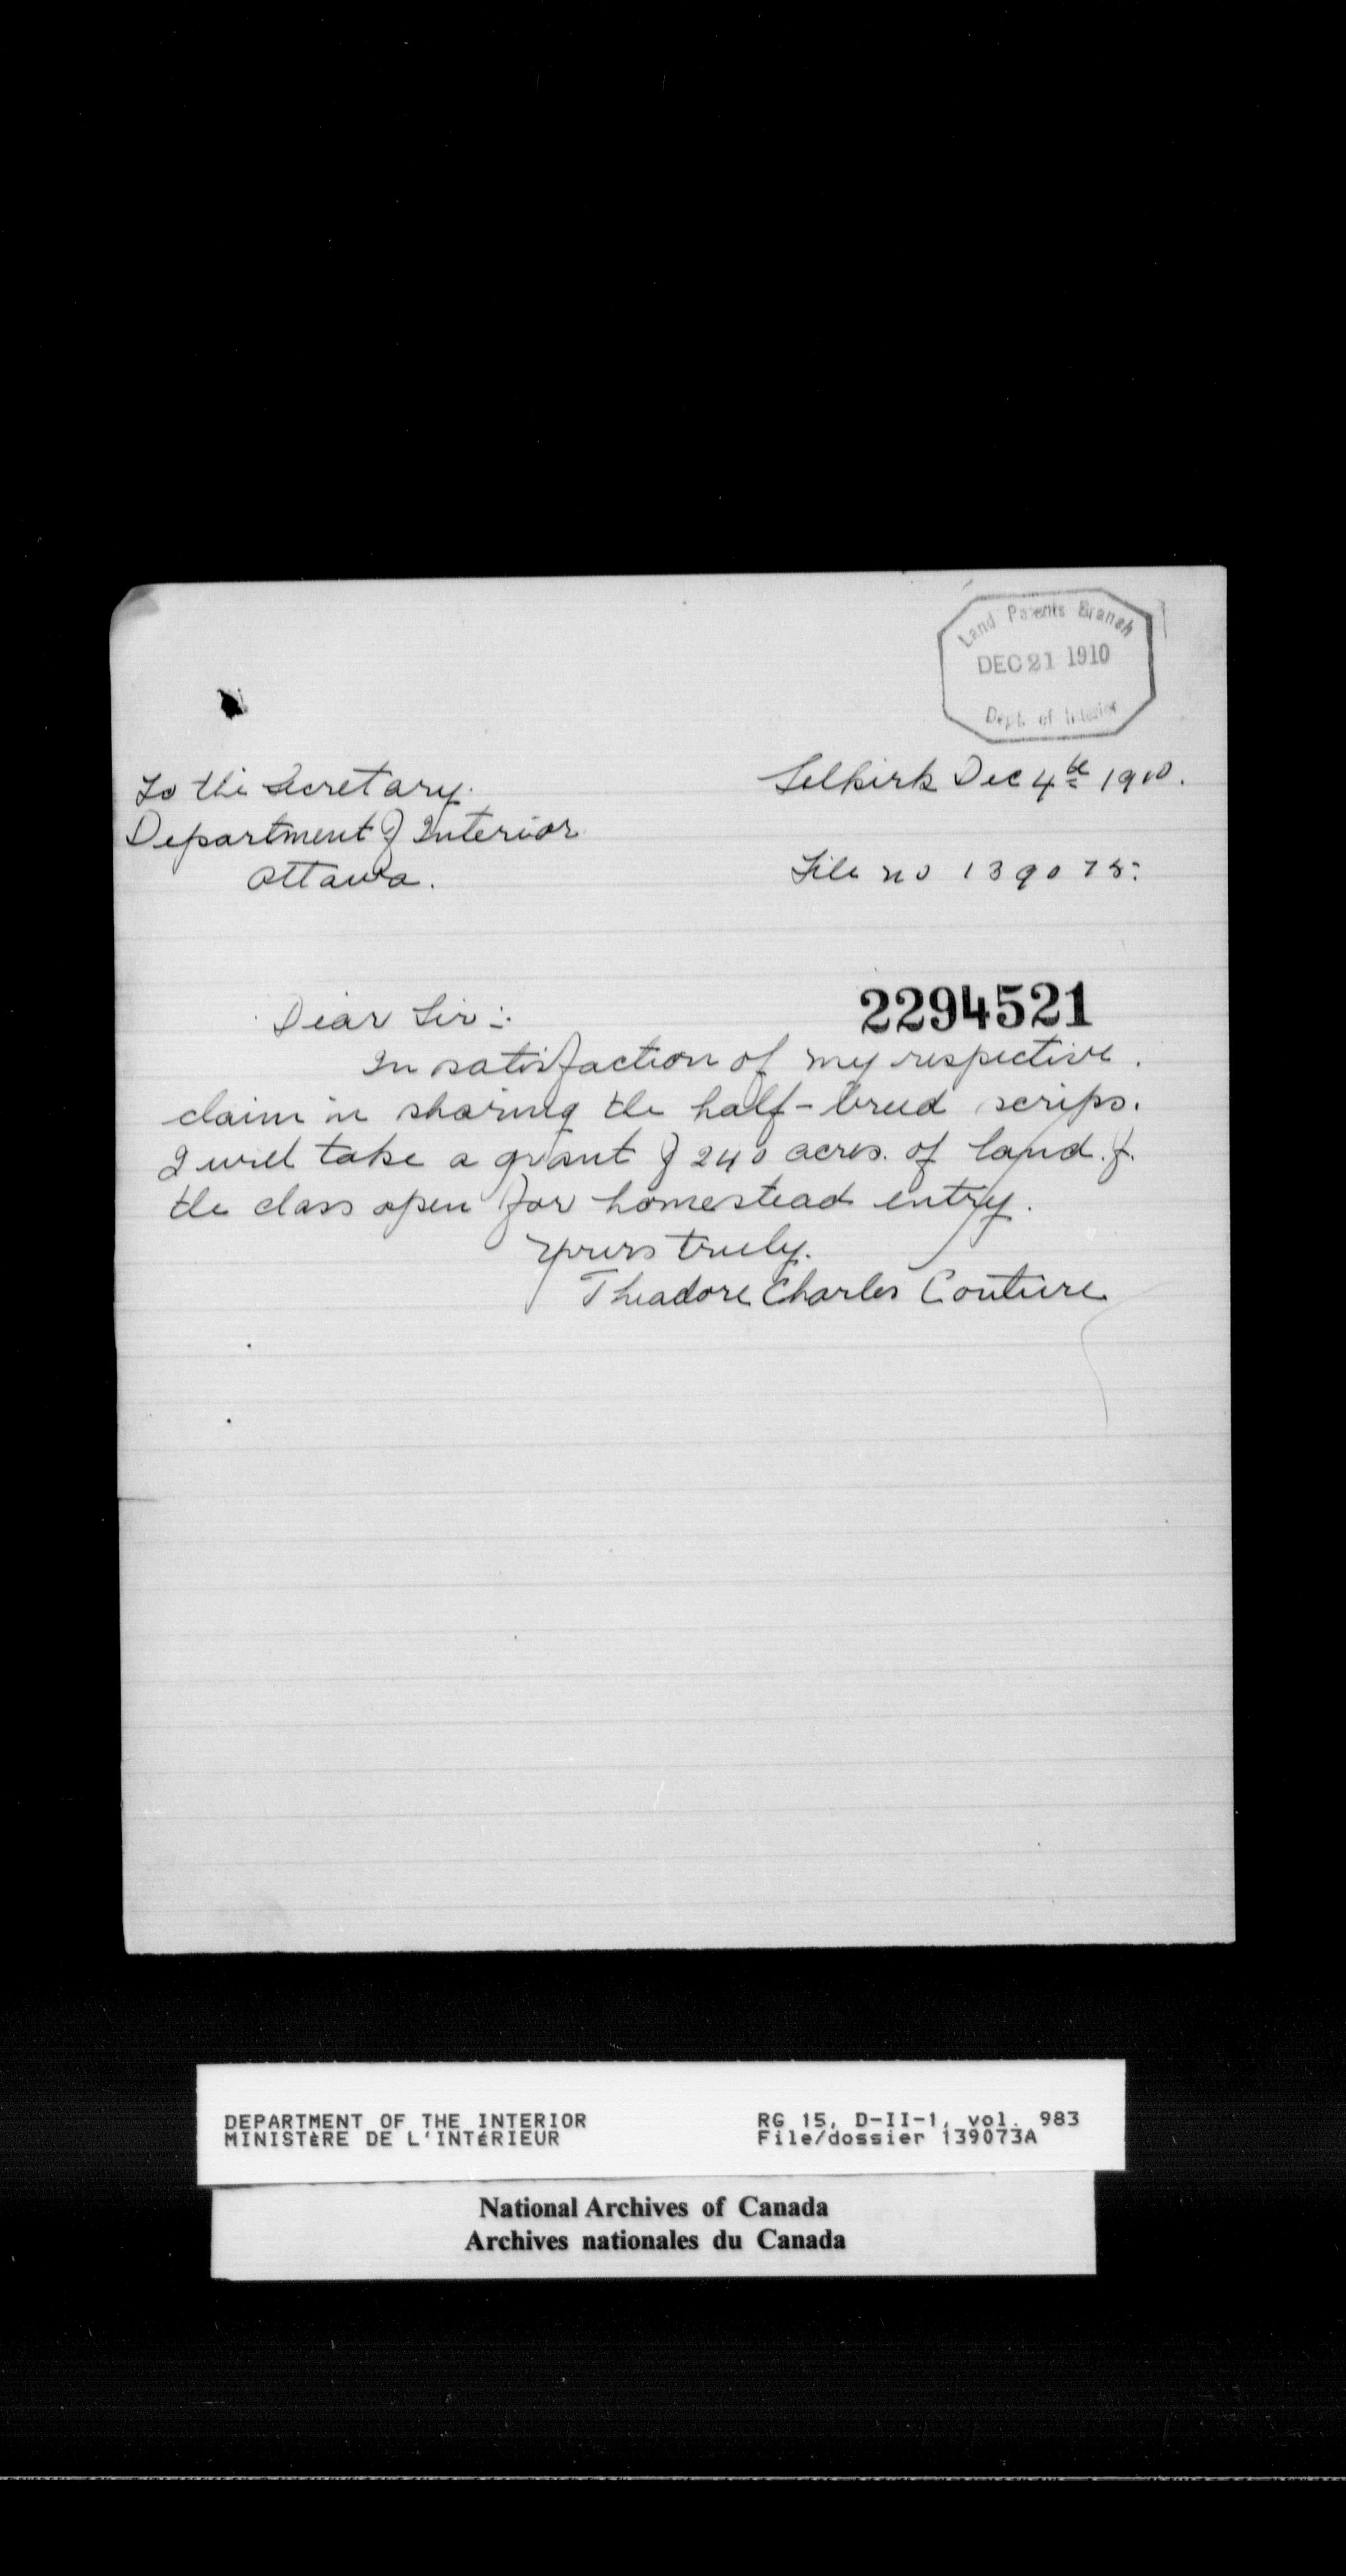 Land Patents Branch
DEC 21 1910
Dept. of Interior
To the Secretary.
Department of Interior
Ottawa.
Selkirk Dec 4th 1910.
File no 139075.
2294521
Dear Sir:-
In satisfaction of my respective.
claim in sharing the half-breed scrips.
I will take a grant of 240 acres. of land. of.
the class open for homestead entry.
Yours truly.
Theadore Charles Couture
DEPARTMENT OF THE INTERIOR
MINISTÈRE DE L'INTÉRIEUR
RG 15, D-II-1, vol. 983
File/dossier 139073A
National Archives of Canada
Archives nationales du Canada